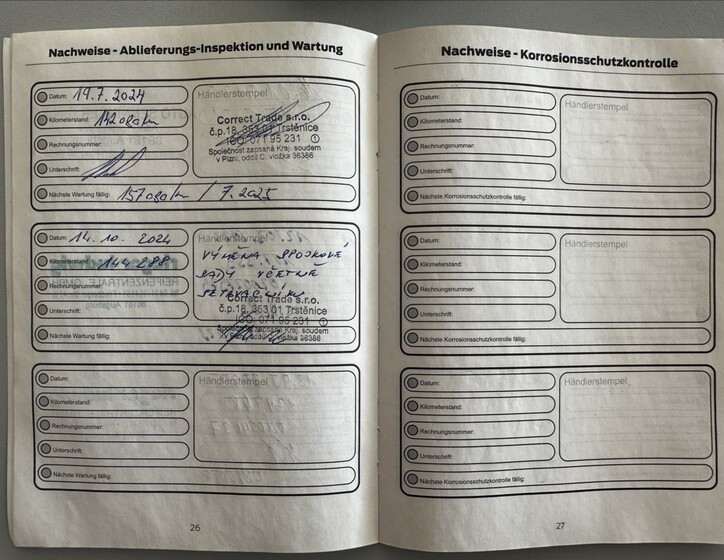 Nachweise - Ablieferungs-Inspektion und Wartung
Datum: 19.7.2024
Kilometerstand: 142080 km
Rechnungsnummer:
Unterschrift:
Nächste Wartung fällig: 157080 km / 7.2025
Händlerstempel
Correct Trade s.r.o.
č.p.18, 353 01 Trstěnice
IČO: 071 95 231 ①
Společnost zapsaná Kraj. soudem
v Plzni, oddíl C, vložka 36386
Datum: 14. 10. 2024
Kilometerstand: 144 288
Rechnungsnummer:
Unterschrift:
Nächste Wartung fällig:
Händlerstempel
VÝMĚNA SPOJKOVÉ
SADY VČETNĚ
SETRVAČNÍKU
Correct Trade s.r.o.
č.p.18, 353 01 Trstěnice
IČO: 071 95 231 ①
Společnost zapsaná Kraj. soudem
vložka 36386
Datum:
Kilometerstand:
Rechnungsnummer:
Unterschrift:
Nächste Wartung fällig:
Händlerstempel
26
Nachweise - Korrosionsschutzkontrolle
Datum:
Kilometerstand:
Rechnungsnummer:
Unterschrift:
Nächste Korrosionsschutzkontrolle fällig:
Händlerstempel
Datum:
Kilometerstand:
Rechnungsnummer:
Unterschrift:
Nächste Korrosionsschutzkontrolle fällig:
Händlerstempel
Datum:
Kilometerstand:
Rechnungsnummer:
Unterschrift:
Nächste Korrosionsschutzkontrolle fällig:
Händlerstempel
27